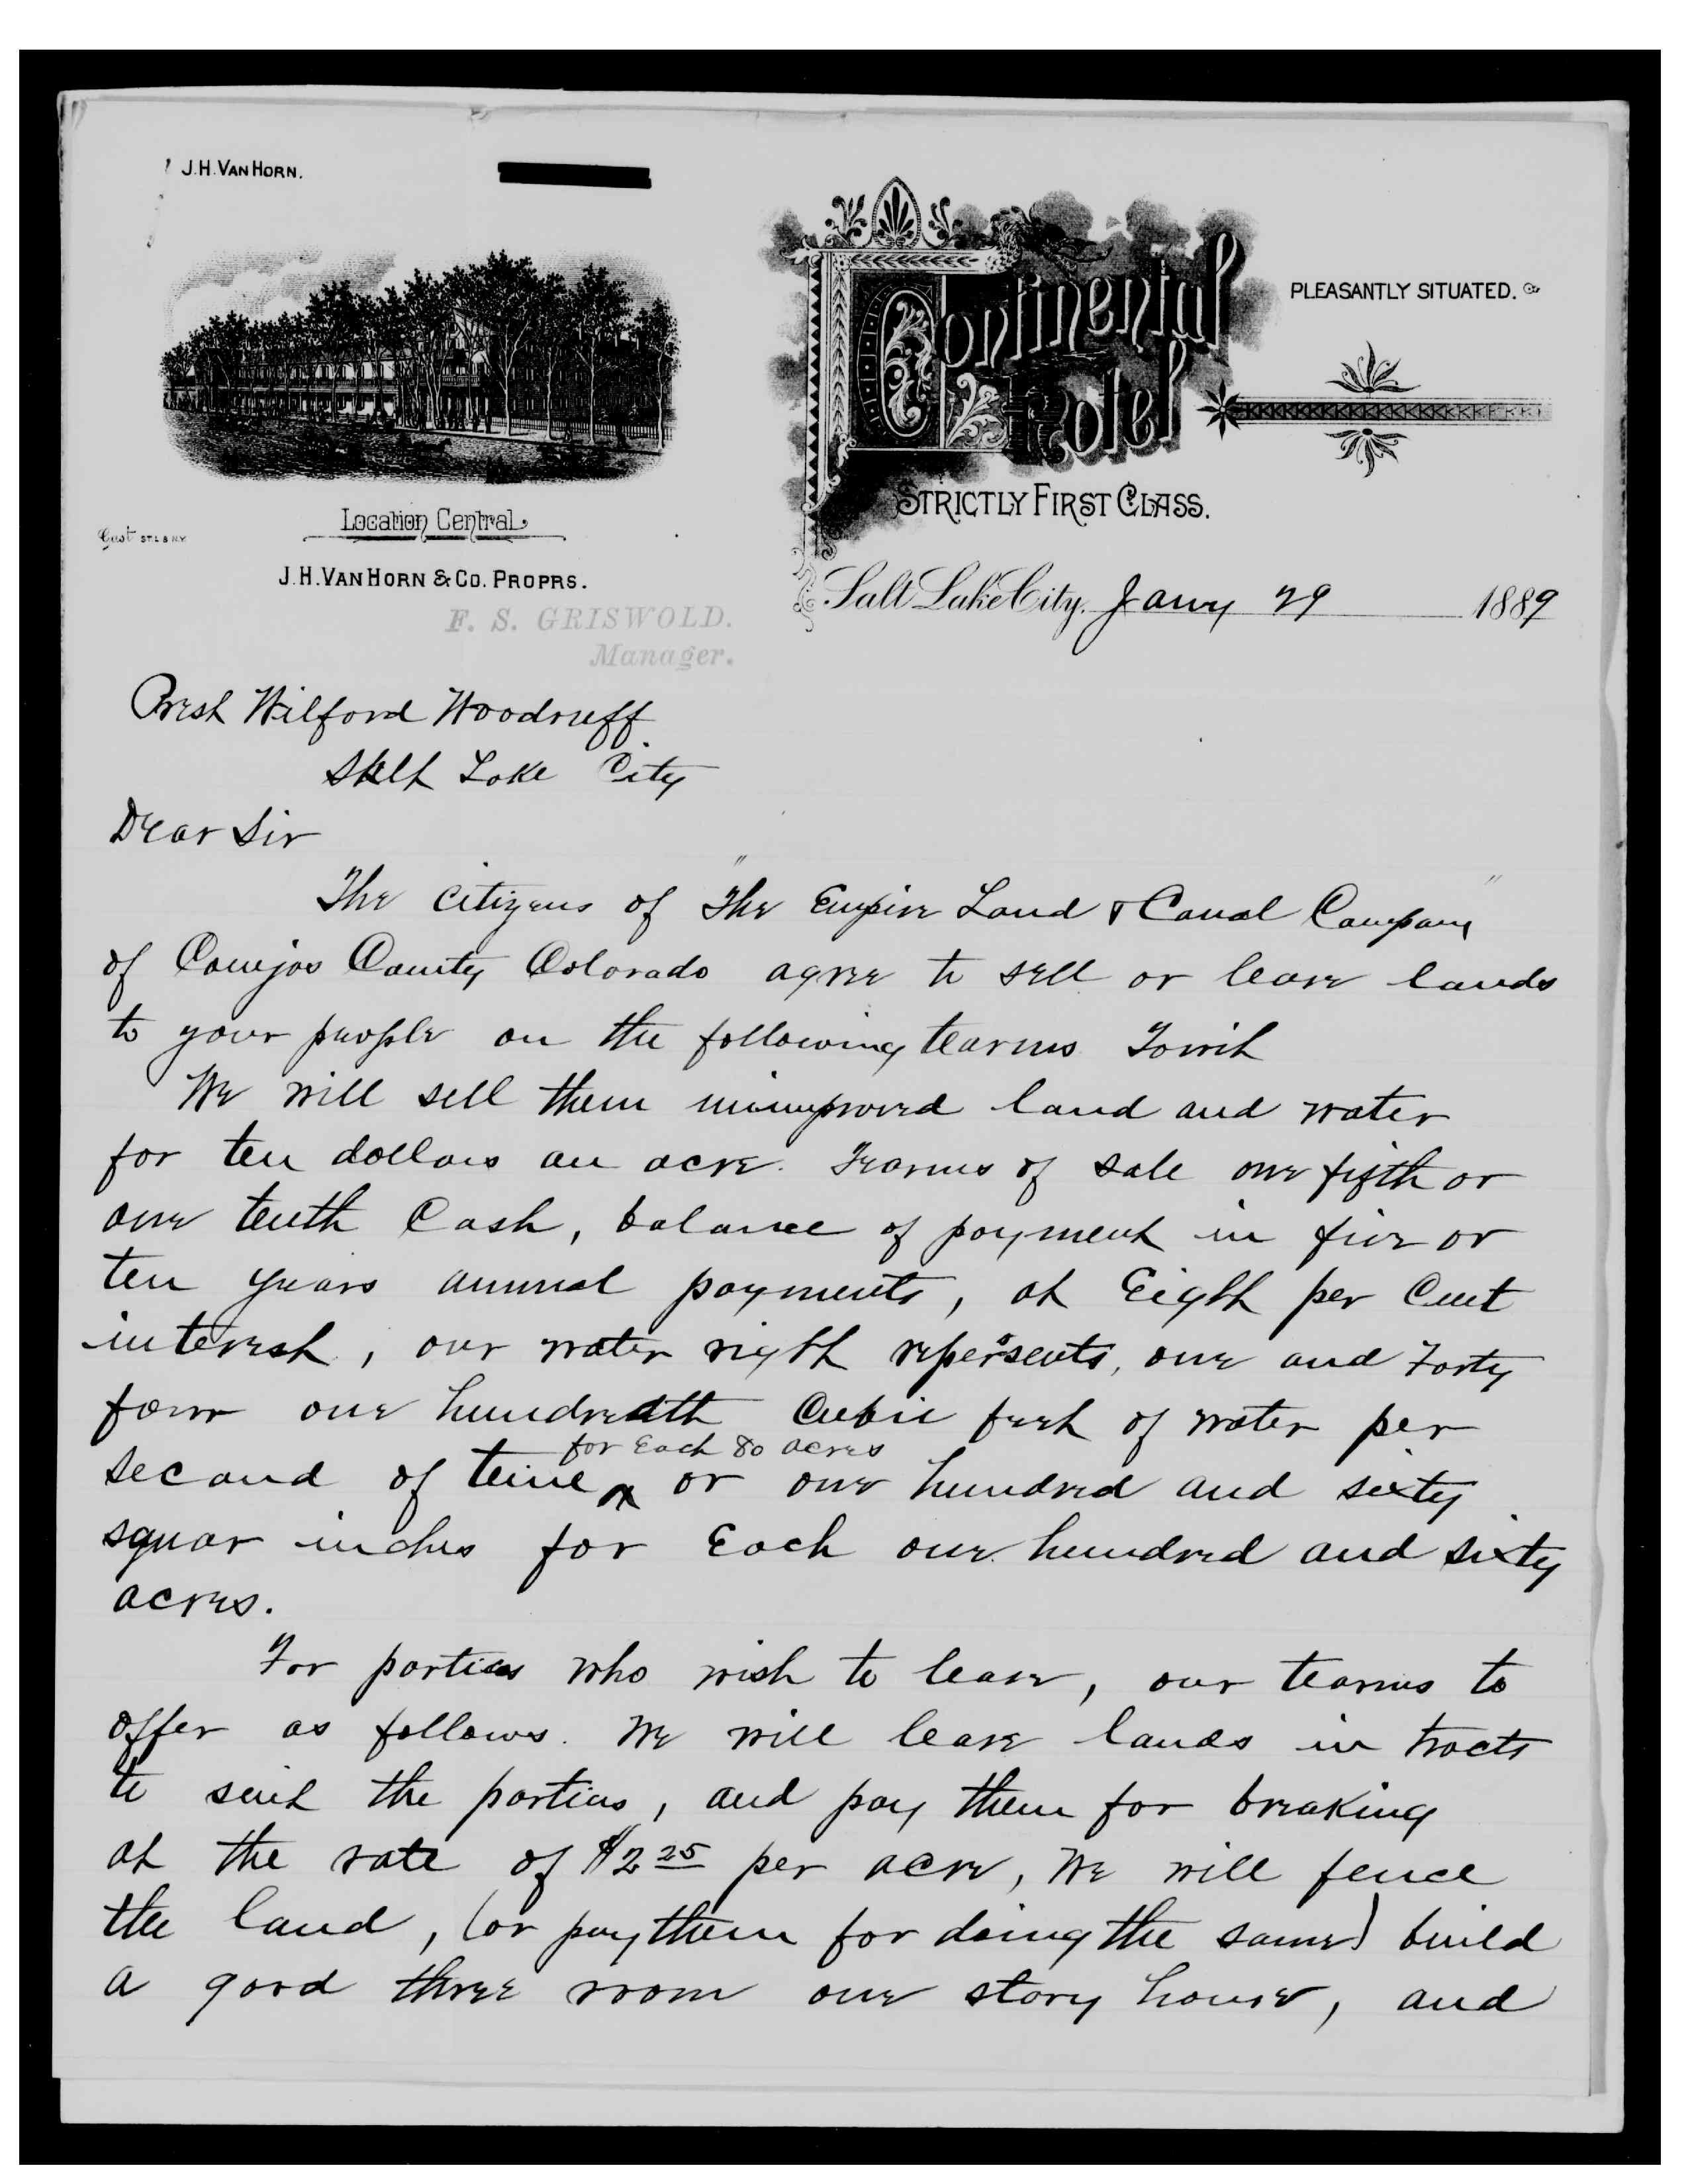 J.H. VAN HORN.
Continental
Hotel
PLEASANTLY SITUATED.
STRICTLY FIRST CLASS.
Location Central
Gast ST.L & N.Y.
J.H. VAN HORN & CO. PROPRS.
F. S. GRISWOLD.
Manager.
Salt Lake City, Jany 29 1889
Prest Wilford Woodruff
Salt Lake City
Dear Sir
The citizens of "The Empire Land & Canal Company"
of Conejos County Colorado agree to sell or lease lands
to your people on the following tearms Towit
We will sell them unimproved land and water
for ten dollars an acre. Tearms of sale one fifth or
one tenth Cash, balance of payment in five or
ten years annual payments, at Eight per Cent
interest, our water right repersents, one and Forty
four one hundredth Cubic feet of water per
second of time for Each 80 acres or one hundred and sixty
squar inches for Each one hundred and sixty
acres.
For parties who wish to lease, our tearms to
offer as follows. We will lease lands in tracts
to suit the parties, and pay them for breaking
at the rate of $2 25 per acre, We will fence
the land, (or pay them for doing the same) build
a good three room one story house, and